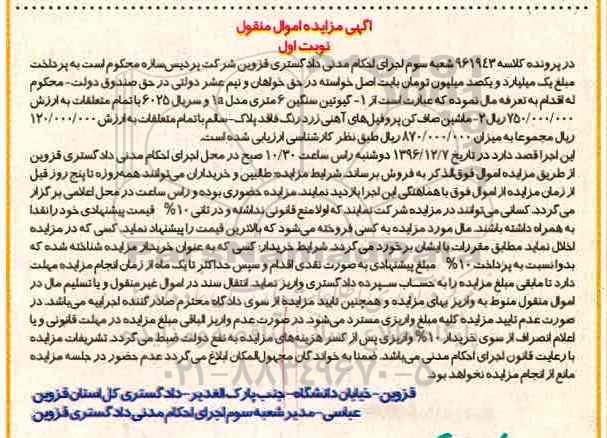 آگهی مزایده اموال منقول
نوبت اول
در پرونده کلاسه ۹۶۱۹۴۳ شعبه سوم اجرای احکام مدنی دادگستری قزوین شرکت پردیس‌سازه محکوم است به پرداخت
مبلغ یک میلیارد و یکصد میلیون تومان بابت اصل خواسته در حق خواهان و نیم عشر دولتی در حق صندوق دولت- محکوم
له اقدام به تعرفه مال نموده که عبارت است از ۱- گیوتین سنگین ۶ متری مدل ۱a و سریال ۶۰۲۵ با تمام متعلقات به ارزش
۷۵۰/۰۰۰/۰۰۰ ریال ۲- ماشین صاف کن پروفیل‌های آهنی زرد رنگ فاقد پلاک-سالم با تمام متعلقات به ارزش ۱۲۰/۰۰۰/۰۰۰
ریال مجموعا به میزان ۸۷۰/۰۰۰/۰۰۰ ریال طبق نظر کارشناسی ارزیابی شده است.
این اجرا قصد دارد در تاریخ ۱۳۹۶/۱۲/۷ دوشنبه راس ساعت ۱۰/۳۰ صبح در محل اجرای احکام مدنی دادگستری قزوین
از طریق مزایده اموال فوق‌الذکر به فروش برساند. شرایط مزایده: طالبین و خریداران می‌توانند همه‌روزه تا پنج روز قبل
از زمان مزایده از اموال فوق با هماهنگی این اجرا بازدید نمایند. مزایده حضوری بوده و راس ساعت در محل اعلامی برگزار
می‌گردد. کسانی می‌توانند در مزایده شرکت نمایند که اولا منع قانونی نداشته و در ثانی ۱۰% قیمت پیشنهادی خود را نقدا
به همراه داشته باشند. مال مورد مزایده به کسی فروخته می‌شود که بالاترین قیمت را پیشنهاد نماید. کسی که در مزایده
اخلال نماید مطابق مقررات با ایشان برخورد می‌گردد. شرایط خریدار: کسی که به عنوان خریدار مزایده شناخته شده که
بدوا نسبت به پرداخت ۱۰% مبلغ پیشنهادی به صورت نقدی اقدام و سپس حداکثر تا یک ماه از زمان انجام مزایده مهلت
دارد تا مابقی مبلغ مزایده را به حساب سپرده دادگستری واریز نماید. انتقال سند در اموال غیرمنقول و یا تسلیم مال در
اموال منقول منوط به واریز بهای مزایده و همچنین تایید مزایده از سوی دادگاه محترم صادرکننده اجراییه می‌باشد. در
صورت عدم تایید مزایده کلیه مبلغ واریزی مسترد می‌شود. در صورت عدم واریز الباقی مبلغ مزایده در مهلت قانونی و یا
اعلام انصراف از سوی خریدار ۱۰% واریزی پس از کسر هزینه‌های مزایده به نفع دولت ضبط می‌گردد. تشریفات مزایده
با رعایت قانون اجرای احکام مدنی می‌باشد. ضمنا به خواندگان مجهول‌المکان ابلاغ می‌گردد عدم حضور در جلسه مزایده
مانع از انجام مزایده نخواهد بود.
قزوین-خیابان دانشگاه-جنب پارک الغدیر-دادگستری کل استان قزوین
عباسی-مدیر شعبه سوم اجرای احکام مدنی دادگستری قزوین
۰۲۱-۸۸۳۴۹۶۷۰-۵